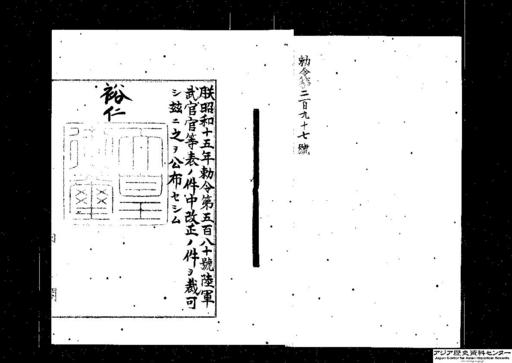 勅令第二百九十七號
朕昭和十五年勅令第五百八十號陸軍
武官官等表ノ件中改正ノ件ヲ裁可
シ玆ニ之ヲ公布セシム
裕仁
天皇
御璽
アジア歴史資料センター
Japan Center for Asian Historical Records